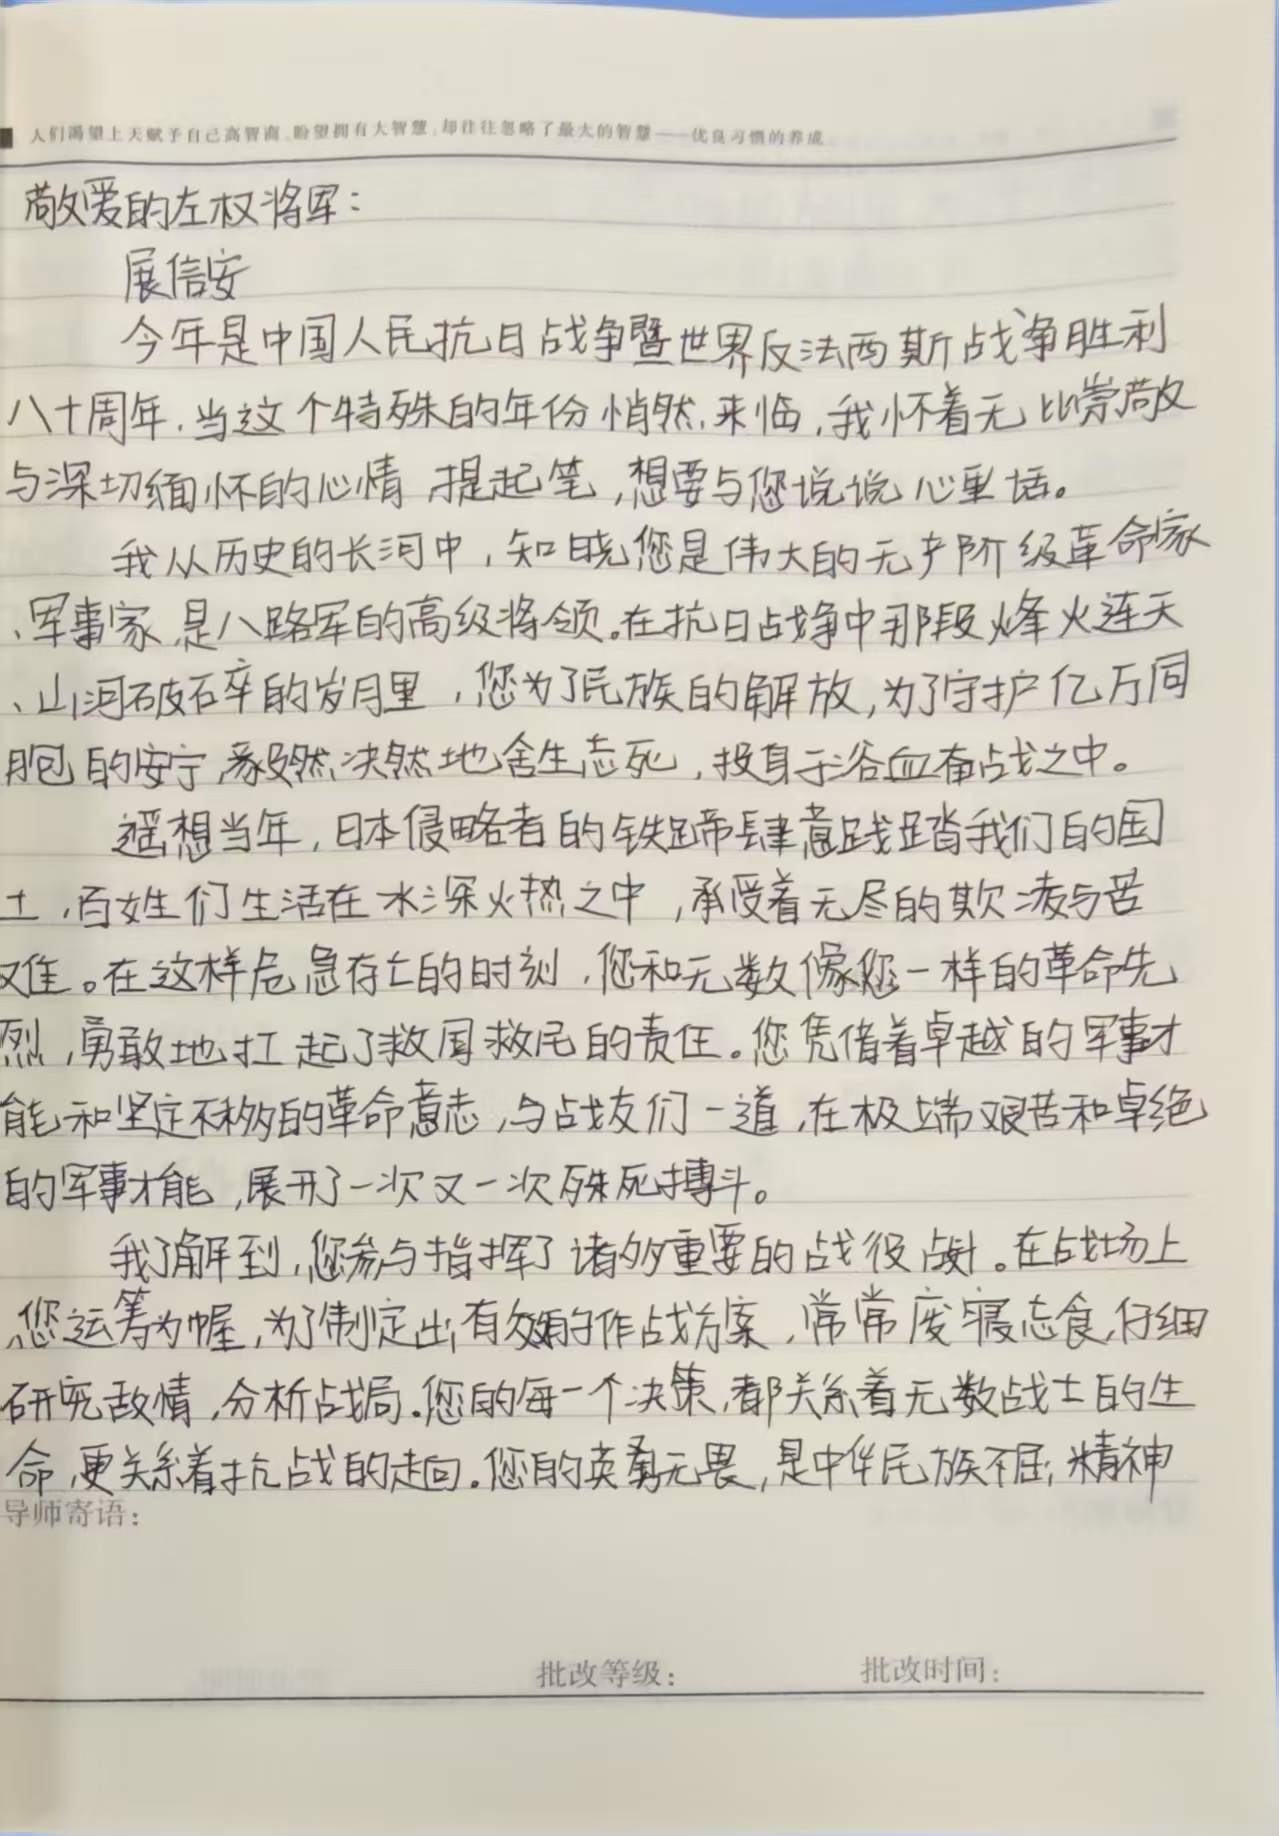 人们渴望上天赋予自己高智商,盼望拥有大智慧,却往往忽略了最大的智慧——优良习惯的养成
敬爱的左权将军：
展信安
今年是中国人民抗日战争暨世界反法西斯战争胜利
八十周年，当这个特殊的年份悄然来临，我怀着无比崇敬
与深切缅怀的心情 提起笔，想要与您说说心里话。
我从历史的长河中，知晓您是伟大的无产阶级革命家
、军事家，是八路军的高级将领。在抗日战争中那段烽火连天
、山河破碎的岁月里，您为了民族的解放，为了守护亿万同
胞的安宁，毅然决然地舍生忘死，投身于浴血奋战之中。
遥想当年，日本侵略者的铁蹄肆意践踏我们的国
土，百姓们生活在水深火热之中，承受着无尽的欺凌与苦
难。在这样危急存亡的时刻，您和无数像您一样的革命先
烈，勇敢地扛起了救国救民的责任。您凭借着卓越的军事才
能和坚定不移的革命意志，与战友们一道，在极端艰苦和卓绝
的军事才能，展开了一次又一次殊死搏斗。
我了解到，您参与指挥了诸多重要的战役战斗。在战场上
，您运筹为幄，为了制定出有效的作战方案，常常废寝忘食，仔细
研究敌情，分析战局。您的每一个决策，都关系着无数战士的生
命，更关系着抗战的走向。您的英勇无畏，是中华民族不屈精神
导师寄语：
批改等级： 批改时间：